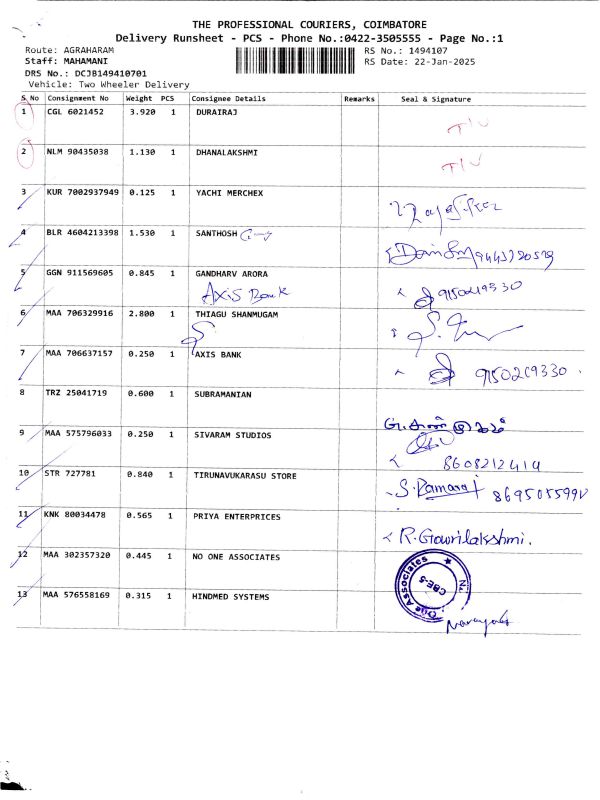 THE PROFESSIONAL COURIERS, COIMBATORE
Delivery Runsheet - PCS - Phone No.:0422-3505555 - Page No.:1
Route: AGRAHARAM RS No.: 1494107
Staff: MAHAMANI RS Date: 22-Jan-2025
DRS No.: DCJB149410701
Vehicle: Two Wheeler Delivery
S No Consignment No Weight PCS Consignee Details Remarks Seal & Signature
1 CGL 6021452 3.920 1 DURAIRAJ
2 NLM 90435038 1.130 1 DHANALAKSHMI
3 KUR 7002937949 0.125 1 YACHI MERCHEX
4 BLR 4604213398 1.530 1 SANTHOSH
5 GGN 911569605 0.845 1 GANDHARV ARORA
AXIS Bank
6 MAA 706329916 2.800 1 THIAGU SHANMUGAM
7 MAA 706637157 0.250 1 AXIS BANK
9150219330
8 TRZ 25041719 0.600 1 SUBRAMANIAN
9 MAA 575796033 0.250 1 SIVARAM STUDIOS
8608212414
10 STR 727781 0.840 1 TIRUNAVUKARASU STORE
S. Ramaraj
11 KNK 80034478 0.565 1 PRIYA ENTERPRICES
R. Gowrilakshmi.
12 MAA 302357320 0.445 1 NO ONE ASSOCIATES
One Associates
CBE-5
13 MAA 576558169 0.315 1 HINDMED SYSTEMS